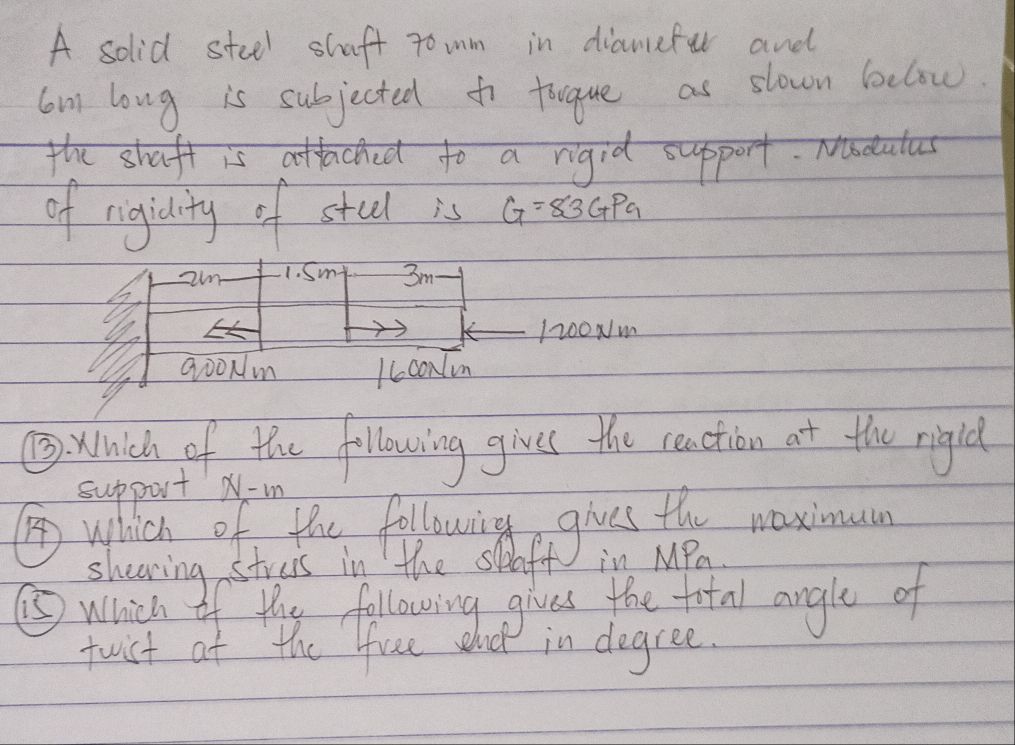 A solid steel shaft 70mm in diameter and
6m long is subjected to torque as slown below.
the shaft is attached to a rigid support. Modulus
of rigidity of steel is G=83GPa
2m 1.5m 3m
1200Nm
900Nm 1600Nm
(13). Which of the following gives the reaction at the rigid
support N-m
(14) Which of the following gives the maximum
sheering stress in the shaft in MPa.
(15) Which of the following gives the total angle of
twist at the free end in degree.